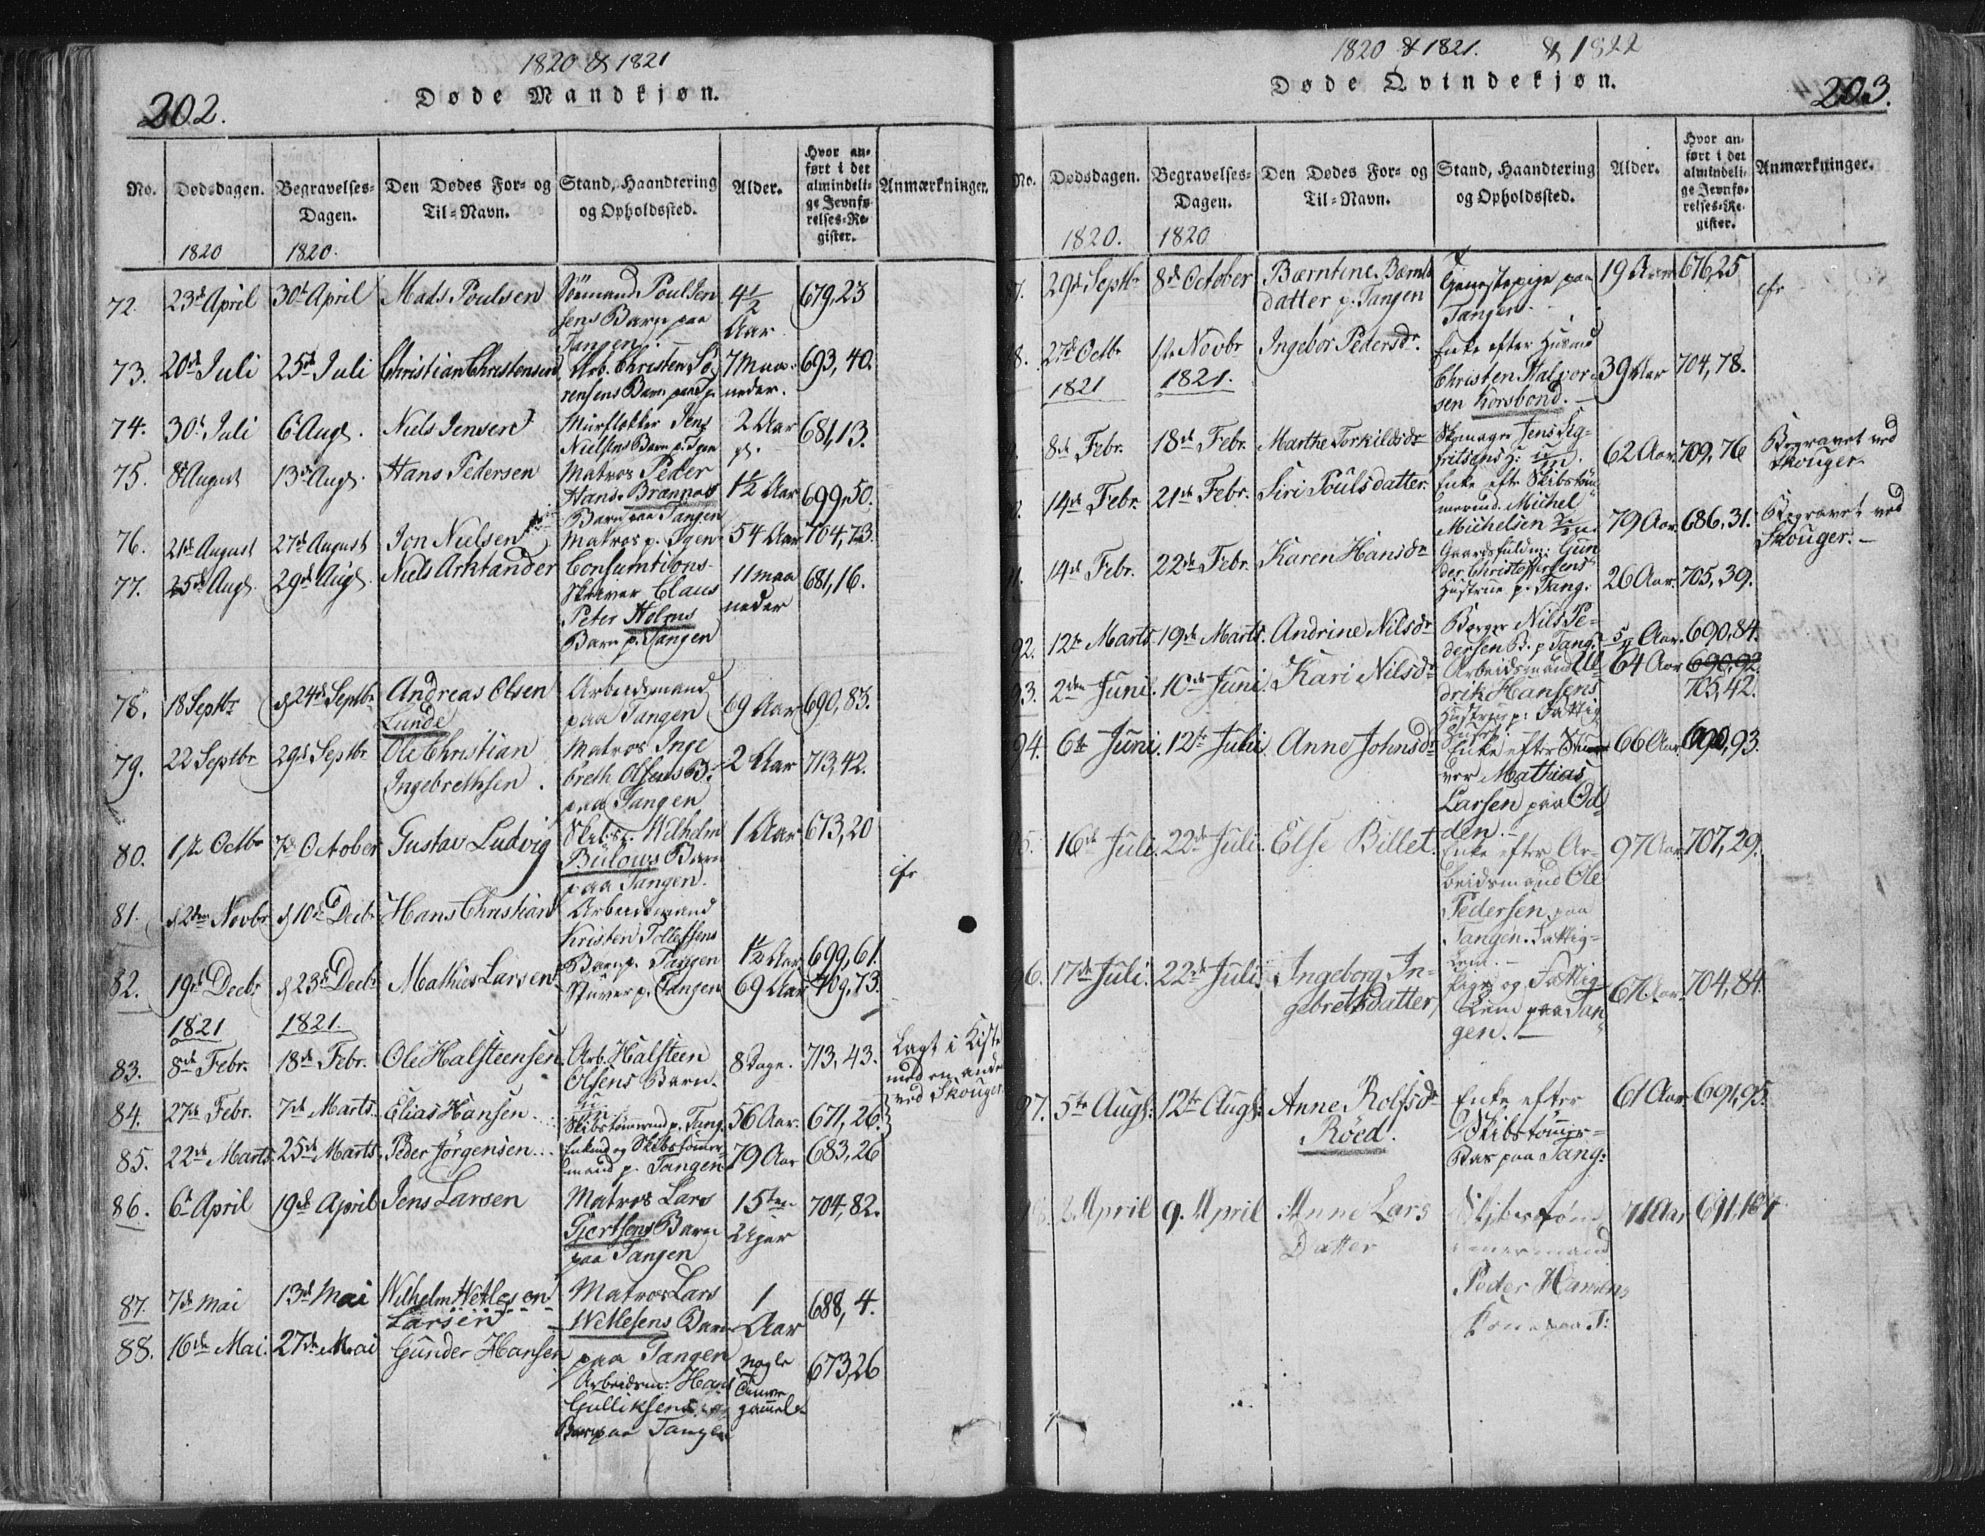 1820 & 1821
202.
Døde Mandkjøn.
No.
Dødsdagen.
Begravelses-
Dagen.
Den Dødes For- og
Til-Navn.
Stand, Haandtering
og Opholdssted.
Alder.
Hvor an-
ført i det
almindeli-
ge Jevnfø-
relses-Re-
gister.
Anmærkninger.
1820 1820.
72. 23d April 30d April Mads Poulsen
Sömand Poulsen
sens Barn paa
Tangen.
4½
Aar
679,23
73. 20de Juli 25de Juli Christian Christensen
Arb. Christen Sö-
rensens Barn
7 Maa-
neder.
693,40.
74. 30d Juli 6d Augs. Niels Jensen
Jens
Nielsens Barn
2 Aar
681,13.
75. 8d August 13de Augs. Hans Pedersen
Matros Peder
Hans. Brennes
Barn paa Tangen
1½ Aar
699,50.
76. 21de August 27de August Jon Nielsen
Matros p. Tgen
54 Aar 704,73.
77. 25de Augs. 29de Augs. Niels Arktander
Consumtions-
Skriver Claus
Peter Helms
Barn p. Tangen
11 maa
neder
681,16.
78. 18 Septbr d 24de Septbr. Andreas Olsen
Lunde
Arbeidsmand
paa Tangen
69 Aar 690,83.
79. 22 Septbr 29de Septbr Ole Christian
Ingebrethsen.
Matros Inge
breth Olsens B.
paa Tangen
2 Aar 713,42.
80. 1ste Octbr 7de October Gustav Ludvig
Skibs. Wilhelm
Bülows Barn
paa Tangen.
1 Aar 673,20
81. d 2den Novbr d 10de Decbr Hans Christian
Arbeidsmand
Kristen Tollefsens
Barn p. Tangen
1½ Aar 699,61.
cfr
82. 19de Decbr d 23de Decbr Mathias Larsen
Stuver p. Tangen
69 Aar 709,73.
1821 1821.
83. 8de Febr. 18de Febr. Ole Halsteensen
Arb. Halsteen
Olsens Barn.
8 Dage. 713,43.
Lagt i Kiste
med en anden
ved Skouger
84. 27de Febr. 7de Marts. Elias Hansen
Skibstömmermd p. Tang.
56 Aar. 671,26.
85. 22de Marts. 25de Marts. Peder Jörgensen...
Enkmd og Skibstömmer-
mand p. Tangen
79 Aar 683,26
86. 6d April 19de April Jens Larsen
Matros Lars
Gjertsens Barn
paa Tangen
15ten
Uger
704,82.
87. 7de Mai 13de Mai Wilhelm Wetlesen
Larsen
Matros Lars
Wetlesens Barn
paa Tangen
1
Aar
688,4.
88. 16de Mai. 27de Mai Gunder Hansen
Arbeidsm: Hans
Gulliksens
Barn paa Tangen
nogle
Timer
gammel
673,26
1820 & 1821. & 1822
Døde Qvindekjøn.
203.
No.
Dødsdagen.
Begravelses-
Dagen.
Den Dødes For- og
Til-Navn.
Stand, Haandtering
og Opholdssted.
Alder.
Hvor an-
ført i det
almindeli-
ge Jevnfø-
relses-Re-
gister.
Anmærkninger.
1820. 1820
7. 29de Septbr 8de October Bærntine Bærnts
datter p. Tangen
Tjenestepige paa
Tangen.
19 Aar 676,25
cfr
8. 27de Octbr 1ste Novbr Ingebor Pedersdr.
Enke efter Husmd
Christen Halvor-
sen Korsbond.
39 Aar 704,78.
1821 1821.
8de Febr. 18de Febr. Marthe Torkildsdr
Skomager Jens Sig-
fritsens
62 Aar. 709,76
Begravet ved
Skouger
0. 14de Febr. 21de Febr. Siri Poulsdatter.
Enke eftr Skibstöm
mermd. Michel
Michelsen
79 Aar. 686,31.
Begravet ved
Skouger.
1. 14de Febr. 22de Febr. Karen Hansdr
Gaardsfuldm: Gun
der Christophersens
Hustrue p. Tang.
26 Aar. 705,39.
92. 12te Marts. 19de Marts. Andrine Nilsdr
Borger Nils Pe-
dersens B. p Tang.
Aar. 690,84.
93. 2den Juni. 10de Juni. Kari Nilsdr
Arbeidsmand Ul
drik Hansens
Hustrue p. Fattig
64 Aar 690,92
705,42.
94. 6te Juni. 12te Juli Anne Johnsdr
Enke efter Stu
ver Mathias
Larsen paa Od
den.
66 Aar 690,93.
5. 16de Juli. 22de Juli. Else Billet.
Enke efter Ar-
beidsmand Ole
Pedersen paa
Tangen. Fattig-
Lem.
97 Aar. 707,29.
96. 17de Juli. 22de Juli. Ingeborg In-
gebretsdatter
Pige og Fattig
Lem paa Tan
gen.
67 Aar. 704,84.
97. 5te Augs: 12te Augs: Anne Rolfsdr
Röed.
Enke efter
Skibstömmer-
paa Tang:
61 Aar 691,95.
2 April 9. April Anne Lars
Datter
Skibstöm
mermand
Peder Hansens
Kone paa T:
71 Aar 691,104